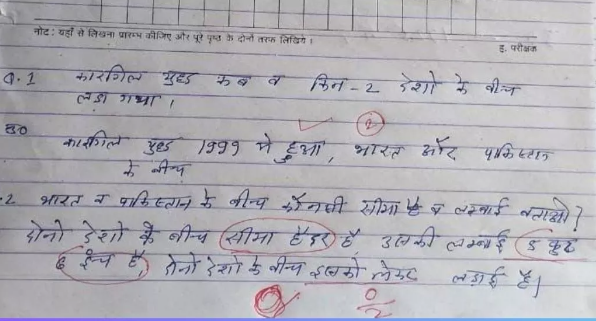 नोट : यहाँ से लिखना प्रारम्भ कीजिए और पूरे पृष्ठ के दोनों तरफ लिखिये ।
ह. परीक्षक
Q.1 कारगिल युद्ध कब व किन-2 देशो के बीच
लडा गया ।
कारगिल युद्ध 1999 मे हुआ, भारत और पाकिस्तान
के बीच
2 भारत व पाकिस्तान के बीच कौनसी सीमा है व लम्बाई बताओ?
दोनो देशो के बीच सीमा हैदर है उसकी लम्बाई 5 फुट
6 ईन्च है, दोनों देशो के बीच इसको लेकर लडाई है।
0
0/2